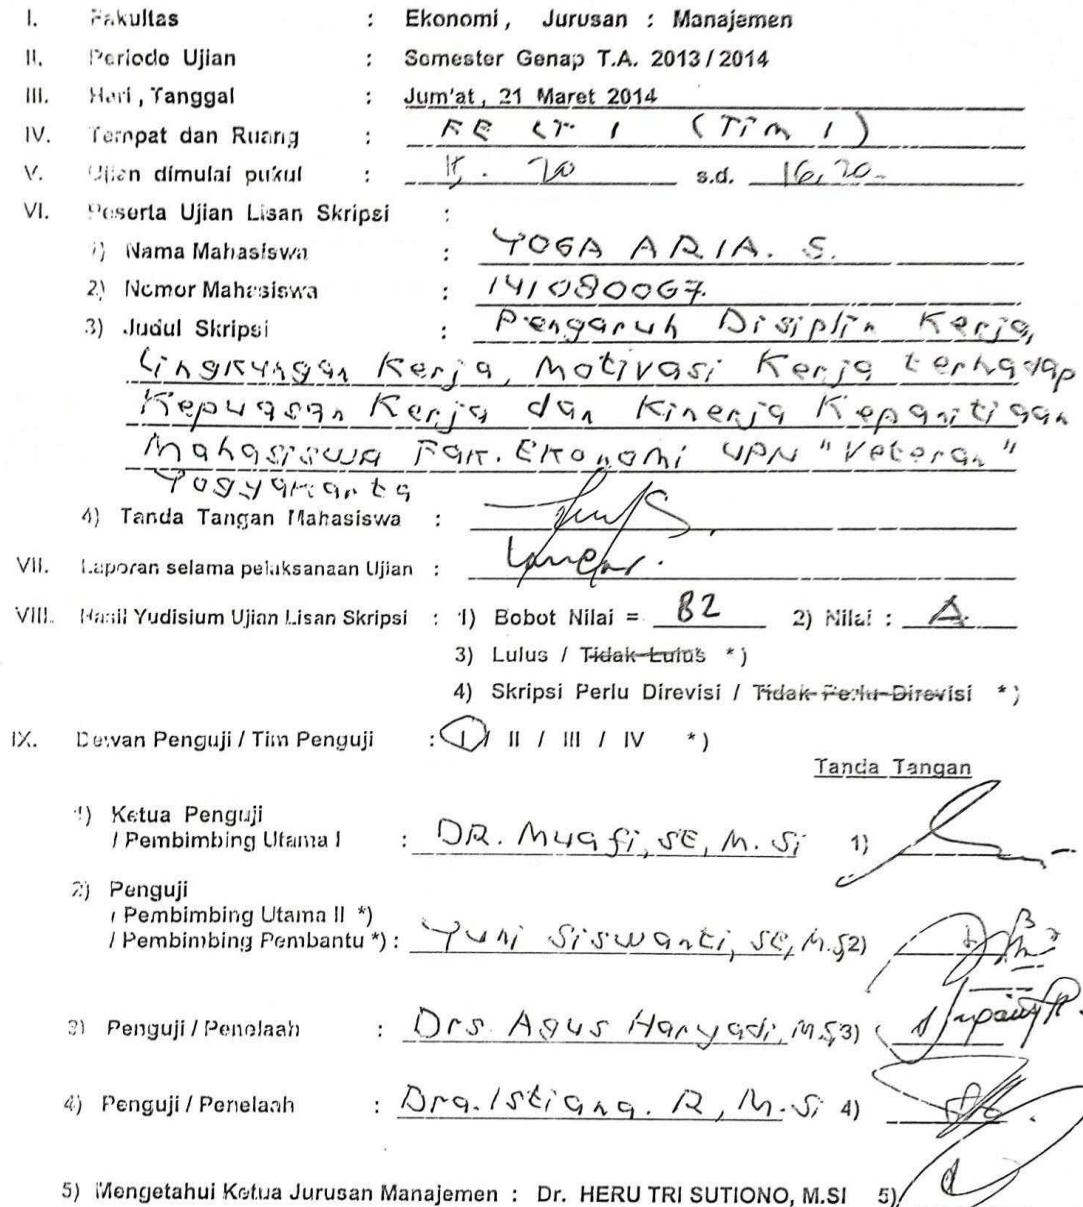 I. Fakultas : Ekonomi, Jurusan : Manajemen
II. Periode Ujian : Semester Genap T.A. 2013 / 2014
III. Hari, Tanggal : Jum'at, 21 Maret 2014
IV. Tempat dan Ruang : FE LT. 1 (Tim 1)
V. Ujian dimulai pukul : s.d. 16.20
VI. Peserta Ujian Lisan Skripsi :
1) Nama Mahasiswa : YOGA ARIA. S.
2) Nomor Mahasiswa : 141080067.
3) Judul Skripsi : Pengaruh Disiplin Kerja,
Lingkungan Kerja, Motivasi Kerja terhadap
Kepuasan Kerja dan Kinerja Kepanitiaan
Mahasiswa Fak. Ekonomi UPN "Veteran"
Yogyakarta
4) Tanda Tangan Mahasiswa :
VII. Laporan selama pelaksanaan Ujian : Lancar.
VIII. Hasil Yudisium Ujian Lisan Skripsi : 1) Bobot Nilai = 82 2) Nilai : A
3) Lulus / Tidak Lulus *)
4) Skripsi Perlu Direvisi / Tidak Perlu Direvisi *)
IX. Dewan Penguji / Tim Penguji : I / II / III / IV *)
Tanda Tangan
1) Ketua Penguji
/ Pembimbing Utama I : DR. Muafi, SE, M.Si 1)
2) Penguji
/ Pembimbing Utama II *)
/ Pembimbing Pembantu *) : Yuni Siswanti, SE, M.S 2)
3) Penguji / Penelaah : Drs Agus Haryadi, M.S 3)
4) Penguji / Penelaah : Dra. Istiana. R, M.Si 4)
5) Mengetahui Ketua Jurusan Manajemen : Dr. HERU TRI SUTIONO, M.SI 5)